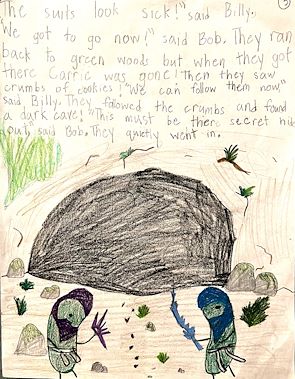 The suits look sick!" said Billy.
"We got to go now!" said Bob. They ran
back to green woods but when they got
there Carrie was gone! Then they saw
crumbs of cookies! "We can follow them now,"
said Billy. They followed the crumbs and found
a dark cave! "This must be there secret hid
out," said Bob. They quietly went in.